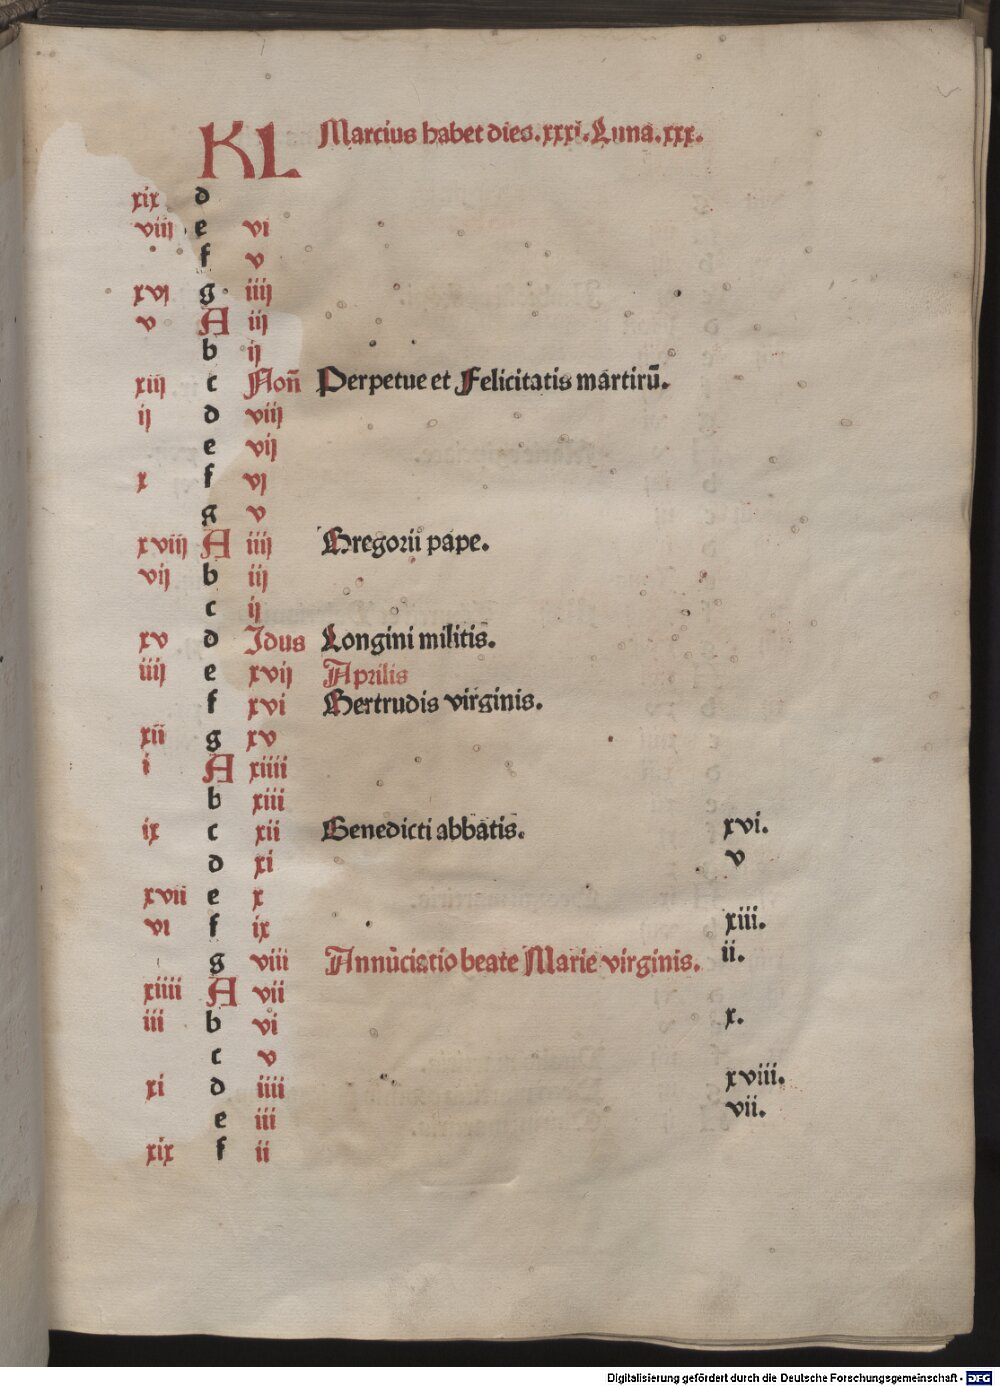 KL Marcius habet dies.xxxi.Luna.xxx.
xix d
viij e vi
f v
xvj g iiij
v A iij
b ij
xiij c Noñ Perpetue et Felicitatis martirū.
ij d viij
e vij
x f vj
g v
xviij A iiij Gregorii pape.
vij b iij
c ij
xv d Idus Longini militis.
iiij e xvij Aprilis
f xvi Gertrudis virginis.
xii g xv
i A xiiii
b xiii
ix c xii Benedicti abbatis. xvi.
d xi v
xvii e x
vi f ix xiii.
g viii Annūciatio beate Marie virginis. ii.
xiiii A vii
iii b vi x.
c v
xi d iiii xviii.
e iii vii.
xix f ii
Digitalisierung gefördert durch die Deutsche Forschungsgemeinschaft - DFG